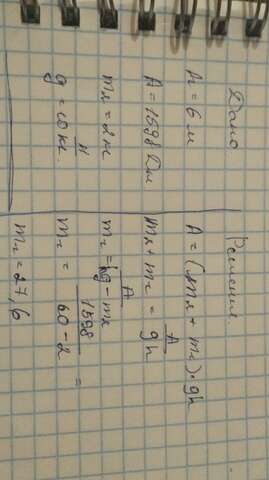 Дано
h = 6 м
A = 1598 Дж
mл = 2 кг
g = 10 Н/кг
Решение.
A = (mл + mг)·gh
mл + mг = A/gh
mг = A/hg - mл
mг = 1598/60 - 2 =
mг = 27,6